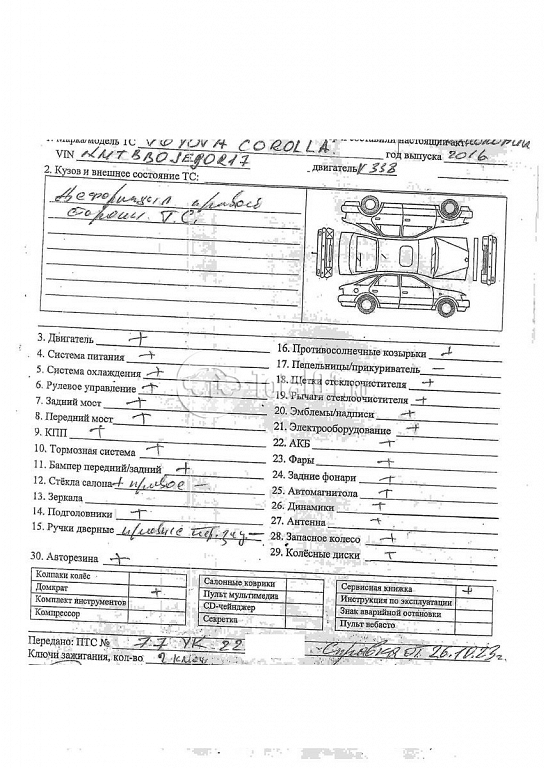 Марка/модель ТС TOYOTA COROLLA составили настоящий акт
VIN год выпуска 2016
2. Кузов и внешнее состояние ТС: двигатель
Деформация правой
стороны Т.С.
3. Двигатель +
4. Система питания +
5. Система охлаждения +
6. Рулевое управление +
7. Задний мост +
8. Передний мост +
9. КПП +
10. Тормозная система +
11. Бампер передний/задний +
12. Стёкла салона + правое —
13. Зеркала
14. Подголовники +
15. Ручки дверные правые пер. зад —
16. Противосолнечные козырьки +
17. Пепельницы/прикуриватель —
18. Щетки стеклоочистителя +
19. Рычаги стеклоочистителя +
20. Эмблемы/надписи +
21. Электрооборудование +
22. АКБ +
23. Фары +
24. Задние фонари +
25. Автомагнитола +
26. Динамики +
27. Антенна +
28. Запасное колесо +
29. Колёсные диски +
30. Авторезина +
Колпаки колёс
Домкрат +
Комплект инструментов
Компрессор
Салонные коврики
Пульт мультимедиа
CD-чейнджер
Секретка
Сервисная книжка +
Инструкция по эксплуатации
Знак аварийной остановки
Пульт вебасто
Передано: ПТС № 77 УК 22 Справка от 26.10.23г.
Ключи зажигания, кол-во 2 ключ